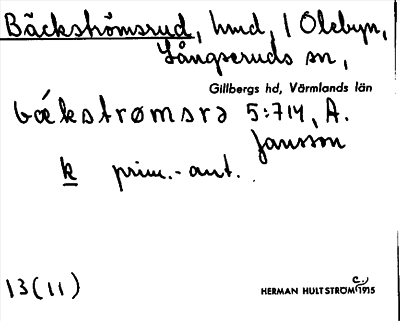 Bäckströmsrud, hmd, / Olebyn,
Långseruds sn,
Gillbergs hd, Värmlands län
bǽkstrømsrə 5:714, A.
Jansson
k prim.-ant.
13(11)
HERMAN HULTSTRÖM c./1915